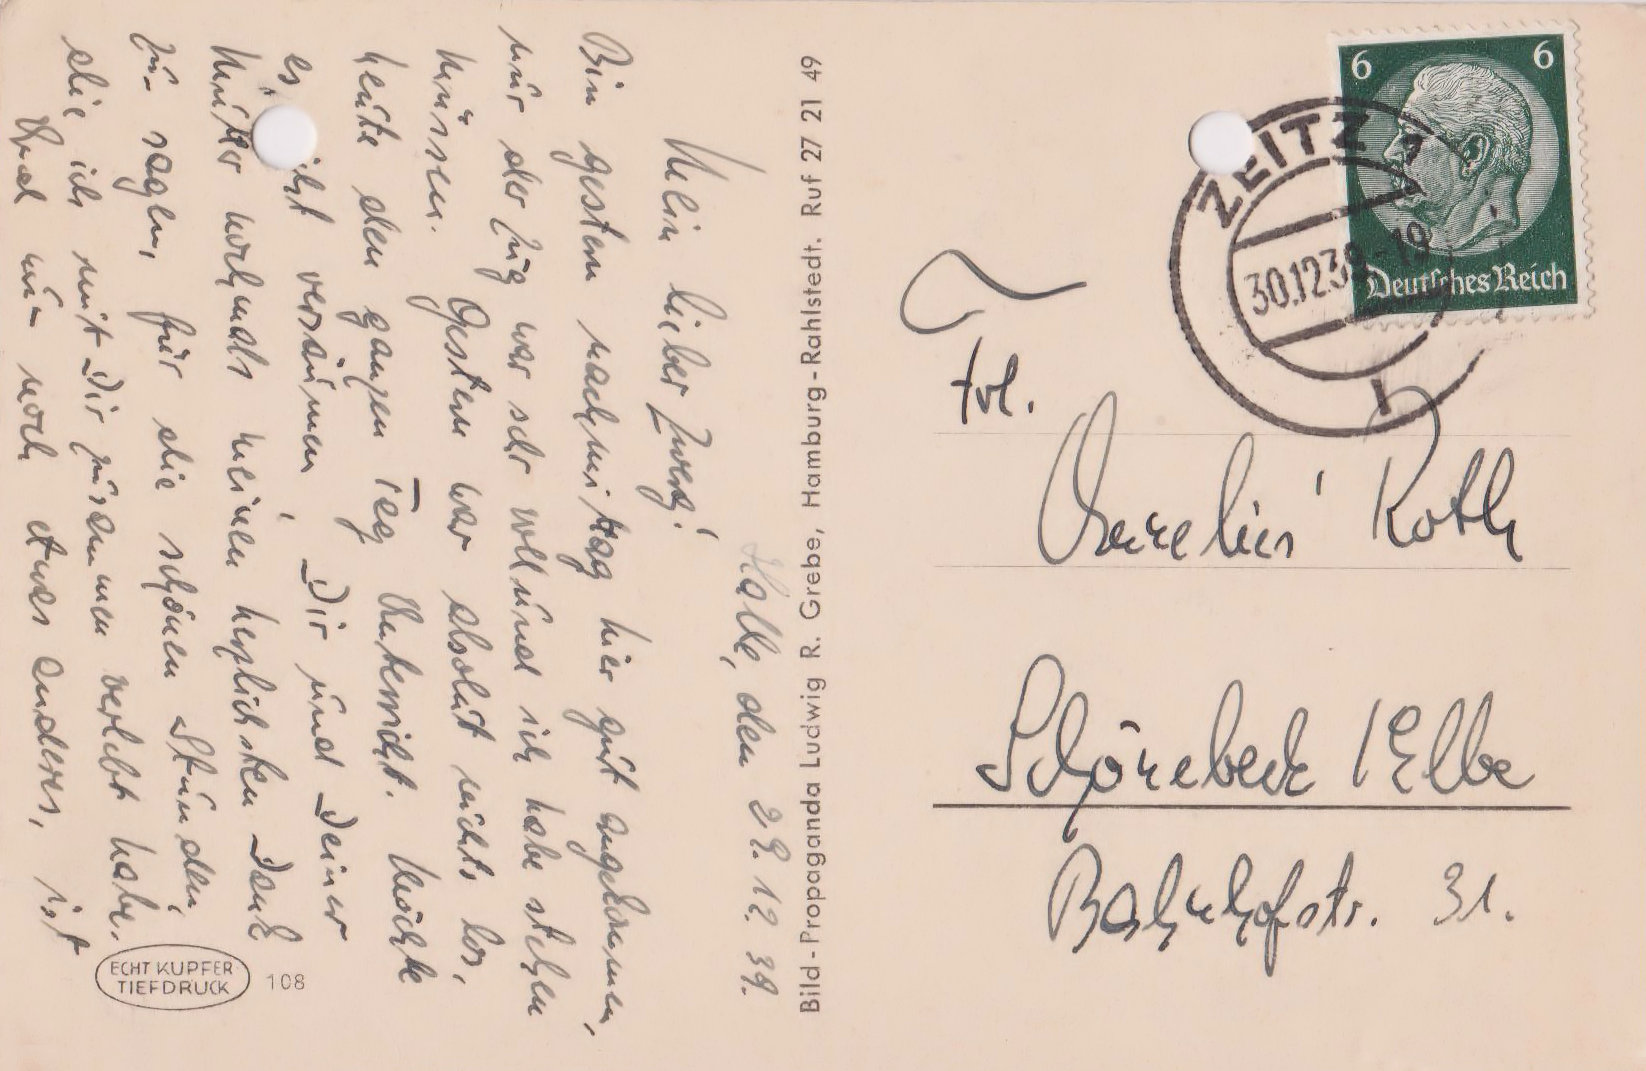 Halle, den 29. 12. 39.
Mein lieber Zwerg!
Bin gestern nachmittag hier gut angekommen,
nur der Zug war sehr voll und ich habe stehen
müssen. Gestern war absolut nichts los,
heute den ganzen Tag Unterricht. Möchte
es nicht versäumen, Dir und Deiner
Mutter nochmals meinen herzlichsten Dank
zu sagen, für die schönen Stunden,
die ich mit Dir zusammen verlebt habe.
Und nun noch etwas anderes, ist
ECHT KUPFER
TIEFDRUCK
108
Bild-Propaganda Ludwig R. Grebe, Hamburg-Rahlstedt. Ruf 27 21 49
6 6
Deutsches Reich
ZEITZ 1
30.12.39-19
Frl.
Roth
Schönebeck / Elbe
Bahnhofstr. 31.